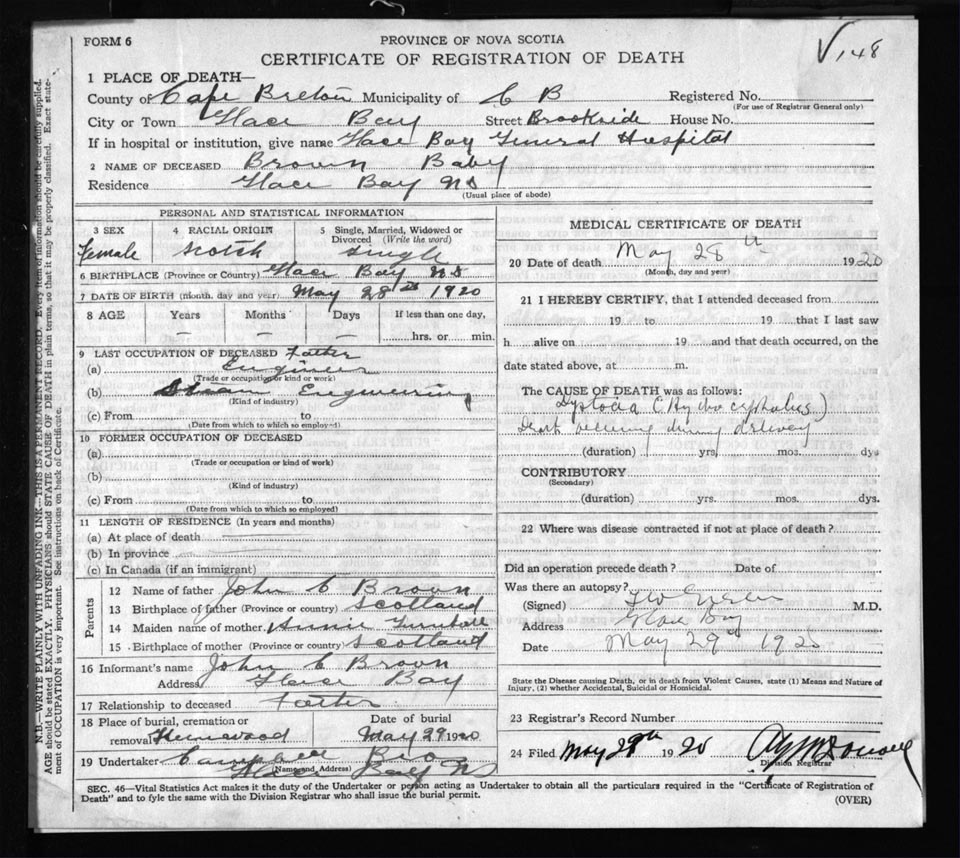 FORM 6
PROVINCE OF NOVA SCOTIA
CERTIFICATE OF REGISTRATION OF DEATH
148
1 PLACE OF DEATH—
County of Cape Breton Municipality of C B Registered No.
(For use of Registrar General only)
City or Town Glace Bay Street Brookside House No.
If in hospital or institution, give name Glace Bay General Hospital
2 NAME OF DECEASED Brown Baby
Residence Glace Bay NS
(Usual place of abode)
PERSONAL AND STATISTICAL INFORMATION
3 SEX Female
4 RACIAL ORIGIN Scotch
5 Single, Married, Widowed or Divorced (Write the word) Single
6 BIRTHPLACE (Province or Country) Glace Bay NS
7 DATE OF BIRTH (month, day and year) May 28th 1920
8 AGE Years Months Days If less than one day,
– – – hrs. or min.
9 LAST OCCUPATION OF DECEASED Father
(a) Engineer
(Trade or occupation or kind of work)
(b) Steam Engineering
(Kind of industry)
(c) From to
(Date from which to which so employed)
10 FORMER OCCUPATION OF DECEASED
(a)
(Trade or occupation or kind of work)
(b)
(Kind of industry)
(c) From to
(Date from which to which so employed)
11 LENGTH OF RESIDENCE (In years and months)
(a) At place of death
(b) In province
(c) In Canada (if an immigrant)
Parents
12 Name of father John C Brown
13 Birthplace of father (Province or country) Scotland
14 Maiden name of mother Annie
15 Birthplace of mother (Province or country) Scotland
16 Informant's name John C Brown
Address Glace Bay
17 Relationship to deceased Father
18 Place of burial, cremation or removal Greenwood
Date of burial May 29 1920
19 Undertaker Bro
(Name and Address) Glace Bay NS
MEDICAL CERTIFICATE OF DEATH
20 Date of death May 28th 1920
(Month, day and year)
21 I HEREBY CERTIFY, that I attended deceased from
19 to 19 that I last saw
h alive on 19 and that death occurred, on the
date stated above, at m.
The CAUSE OF DEATH was as follows:
Dystocia (Hydrocephalus)
Death occuring during delivery
(duration) yrs. mos. dys
CONTRIBUTORY
(Secondary)
(duration) yrs. mos. dys.
22 Where was disease contracted if not at place of death?
Did an operation precede death? Date of
Was there an autopsy?
(Signed) M.D.
Address Glace Bay
Date May 29 1920
State the Disease causing Death, or in death from Violent Causes, state (1) Means and Nature of
Injury, (2) whether Accidental, Suicidal or Homicidal.
23 Registrar's Record Number
24 Filed May 29th 1920
Division Registrar
SEC. 46—Vital Statistics Act makes it the duty of the Undertaker or person acting as Undertaker to obtain all the particulars required in the "Certificate of Registration of
Death" and to fyle the same with the Division Registrar who shall issue the burial permit.
(OVER)
N.B.—WRITE PLAINLY WITH UNFADING INK—THIS IS A PERMANENT RECORD. Every item of information should be carefully supplied.
AGE should be stated EXACTLY. PHYSICIANS should STATE CAUSE OF DEATH in plain terms, so that it may be properly classified. Exact statement of OCCUPATION is very important. See instructions on back of Certificate.